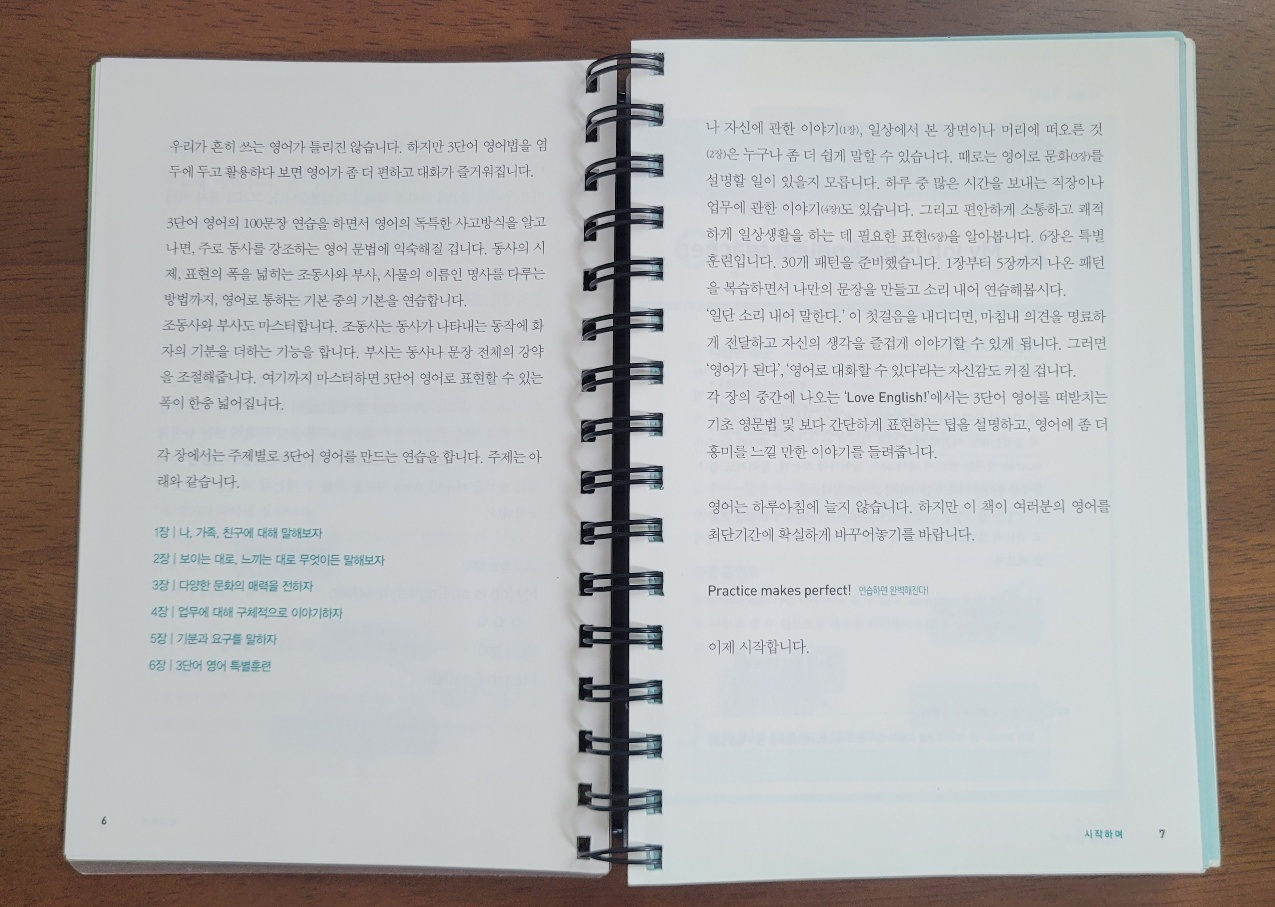 우리가 흔히 쓰는 영어가 틀리진 않습니다. 하지만 3단어 영어법을 염
두에 두고 활용하다 보면 영어가 좀 더 편하고 대화가 즐거워집니다.
3단어 영어의 100문장 연습을 하면서 영어의 독특한 사고방식을 알고
나면, 주로 동사를 강조하는 영어 문법에 익숙해질 겁니다. 동사의 시
제, 표현의 폭을 넓히는 조동사와 부사, 사물의 이름인 명사를 다루는
방법까지, 영어로 통하는 기본 중의 기본을 연습합니다.
조동사와 부사도 마스터합니다. 조동사는 동사가 나타내는 동작에 화
자의 기분을 더하는 기능을 합니다. 부사는 동사나 문장 전체의 강약
을 조절해줍니다. 여기까지 마스터하면 3단어 영어로 표현할 수 있는
폭이 한층 넓어집니다.
각 장에서는 주제별로 3단어 영어를 만드는 연습을 합니다. 주제는 아
래와 같습니다.
1장 | 나, 가족, 친구에 대해 말해보자
2장 | 보이는 대로, 느끼는 대로 무엇이든 말해보자
3장 | 다양한 문화의 매력을 전하자
4장 | 업무에 대해 구체적으로 이야기하자
5장 | 기분과 요구를 말하자
6장 | 3단어 영어 특별훈련
6
나 자신에 관한 이야기(1장), 일상에서 본 장면이나 머리에 떠오른 것
(2장)은 누구나 좀 더 쉽게 말할 수 있습니다. 때로는 영어로 문화(3장)를
설명할 일이 있을지 모릅니다. 하루 중 많은 시간을 보내는 직장이나
업무에 관한 이야기(4장)도 있습니다. 그리고 편안하게 소통하고 쾌적
하게 일상생활을 하는 데 필요한 표현(5장)을 알아봅니다. 6장은 특별
훈련입니다. 30개 패턴을 준비했습니다. 1장부터 5장까지 나온 패턴
을 복습하면서 나만의 문장을 만들고 소리 내어 연습해봅시다.
'일단 소리 내어 말한다.' 이 첫걸음을 내디디면, 마침내 의견을 명료하
게 전달하고 자신의 생각을 즐겁게 이야기할 수 있게 됩니다. 그러면
'영어가 된다', '영어로 대화할 수 있다'라는 자신감도 커질 겁니다.
각 장의 중간에 나오는 'Love English!'에서는 3단어 영어를 떠받치는
기초 영문법 및 보다 간단하게 표현하는 팁을 설명하고, 영어에 좀 더
흥미를 느낄 만한 이야기를 들려줍니다.
영어는 하루아침에 늘지 않습니다. 하지만 이 책이 여러분의 영어를
최단기간에 확실하게 바꾸어놓기를 바랍니다.
Practice makes perfect! 연습하면 완벽해진다!
이제 시작합니다.
시작하며 7